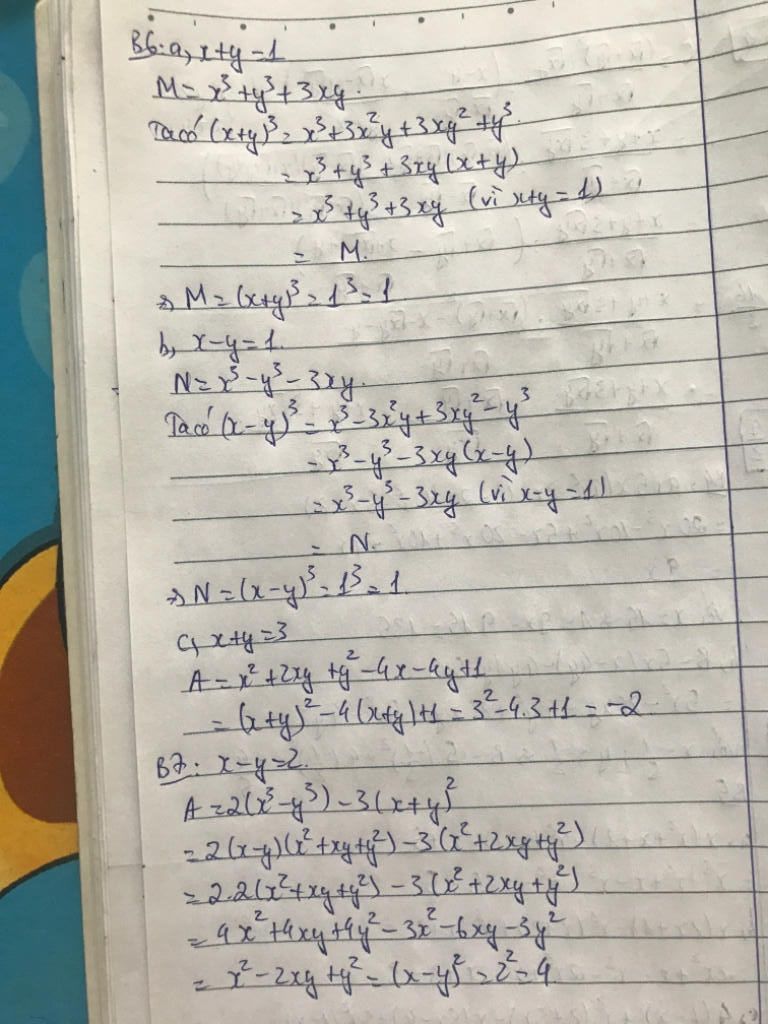 B6: a, x+y=1
M = x³+y³+3xy.
Ta có (x+y)³ = x³+3x²y+3xy²+y³
= x³+y³+3xy(x+y)
= x³+y³+3xy (vì x+y=1)
= M.
⇒ M = (x+y)³ = 1³ = 1
b, x-y=1.
N = x³-y³-3xy.
Ta có (x-y)³ = x³-3x²y+3xy²-y³
= x³-y³-3xy(x-y)
= x³-y³-3xy (vì x-y=1)
= N.
⇒ N = (x-y)³ = 1³ = 1.
c, x+y=3
A = x²+2xy+y²-4x-4y+1
= (x+y)²-4(x+y)+1 = 3²-4.3+1 = -2
B7: x-y=2.
A = 2(x³-y³)-3(x+y)²
= 2(x-y)(x²+xy+y²)-3(x²+2xy+y²)
= 2.2(x²+xy+y²)-3(x²+2xy+y²)
= 4x²+4xy+4y²-3x²-6xy-3y²
= x²-2xy+y² = (x-y)² = 2² = 4